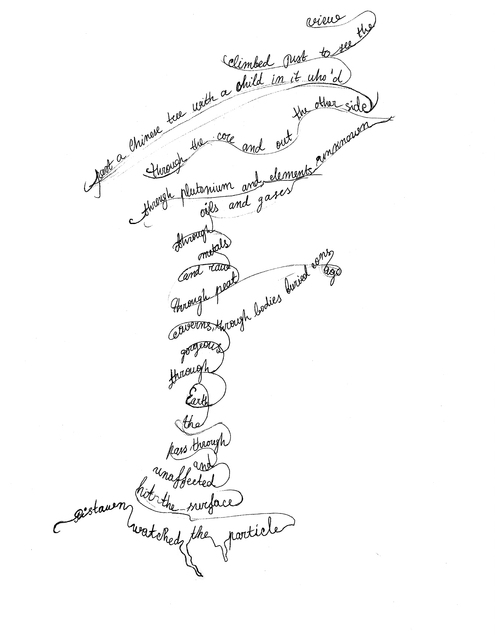 watched the particle
hit the surface
unaffected
and
pass through
the
Earth
through
gorgeous
caverns, through bodies buried eons
ago
through peat
and raw
metals
through
oils and gases
through plutonium and elements unknown
through the core and out the other side
past a Chinese tree with a child in it who'd
climbed just to see the
view